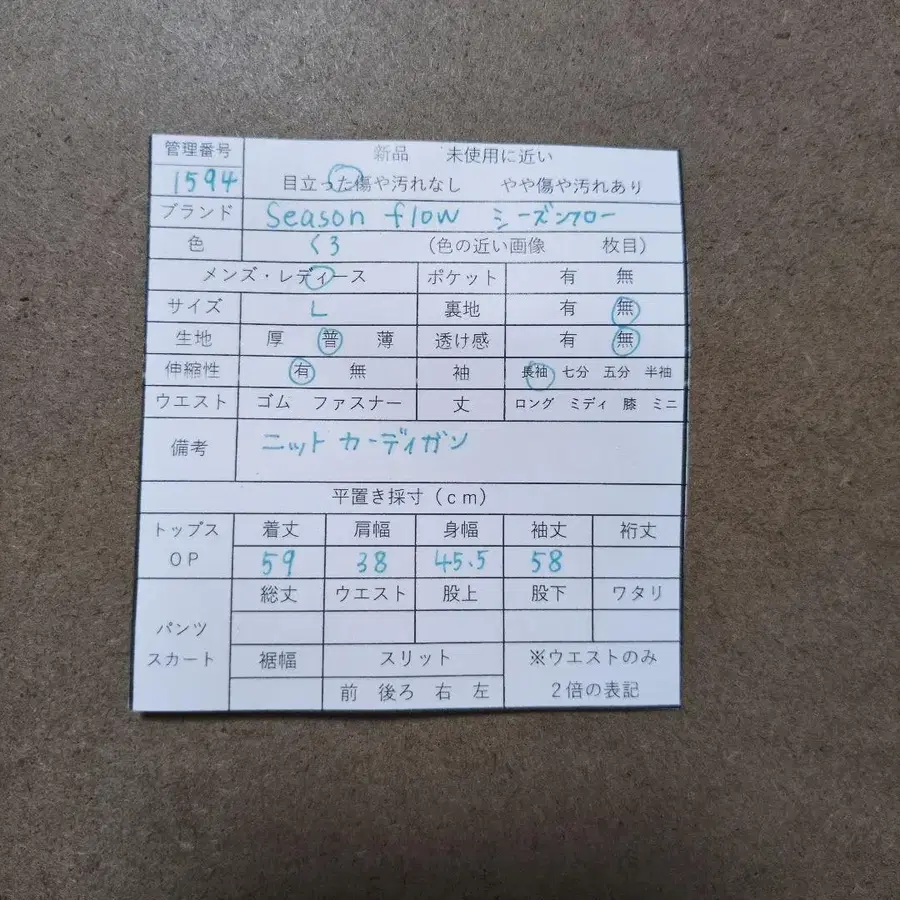 管理番号 新品 未使用に近い
1594 目立った傷や汚れなし やや傷や汚れあり
ブランド Season flow シーズンフロー
色 くろ (色の近い画像 枚目)
メンズ・レディース ポケット 有 無
サイズ L 裏地 有 無
生地 厚 普 薄 透け感 有 無
伸縮性 有 無 袖 長袖 七分 五分 半袖
ウエスト ゴム ファスナー 丈 ロング ミディ 膝 ミニ
備考 ニット カーディガン
平置き採寸(cm)
トップス 着丈 肩幅 身幅 袖丈 裄丈
OP 59 38 45.5 58
総丈 ウエスト 股上 股下 ワタリ
パンツ
スカート 裾幅 スリット ※ウエストのみ
前 後ろ 右 左 2倍の表記